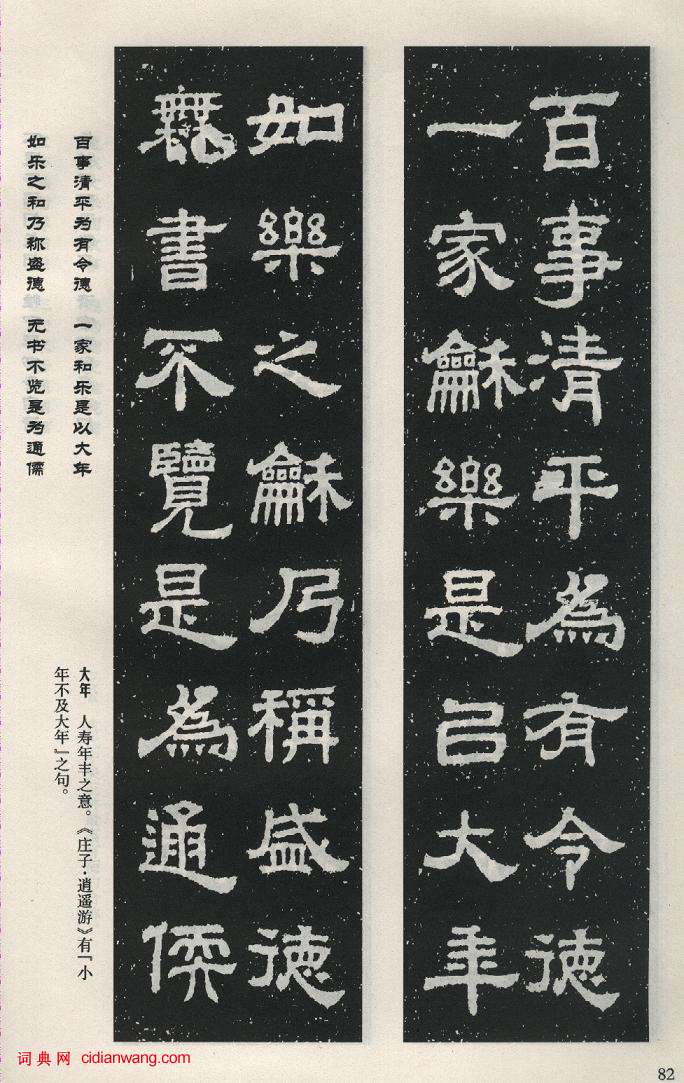 百事清平為有令德
一家龢樂是㠯大年
如樂之龢乃稱盛德
無書不覽是為通儒
百事清平为有令德 一家和乐是以大年
如乐之和乃称盛德 无书不览是为通儒
大年 人寿年丰之意。《庄子·逍遥游》有「小
年不及大年』之句。
词典网 cidianwang.com
82